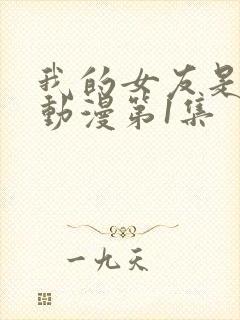 我的女友是
動漫第1集
一九天